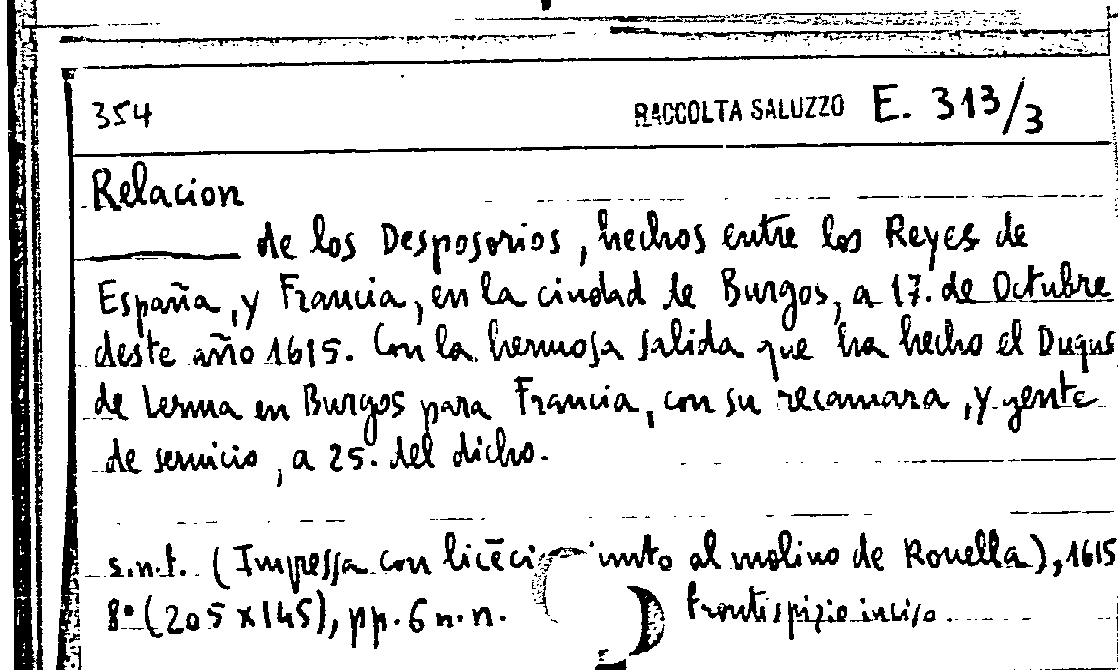 354 RACCOLTA SALUZZO E. 313/3
Relacion
de los Desposorios, hechos entre los Reyes de
España, y Francia, en la ciudad de Burgos, a 17. de Octubre
deste año 1615. Con la hermosa salida que ha hecho el Duque
de Lerma en Burgos para Francia, con su recamara, y gente
de seruicio, a 25. del dicho.
s.n.t. (Impressa con licēci al molino de Rouella), 1615
8° (205 x 145), pp. 6 n.n. frontispizio inciso